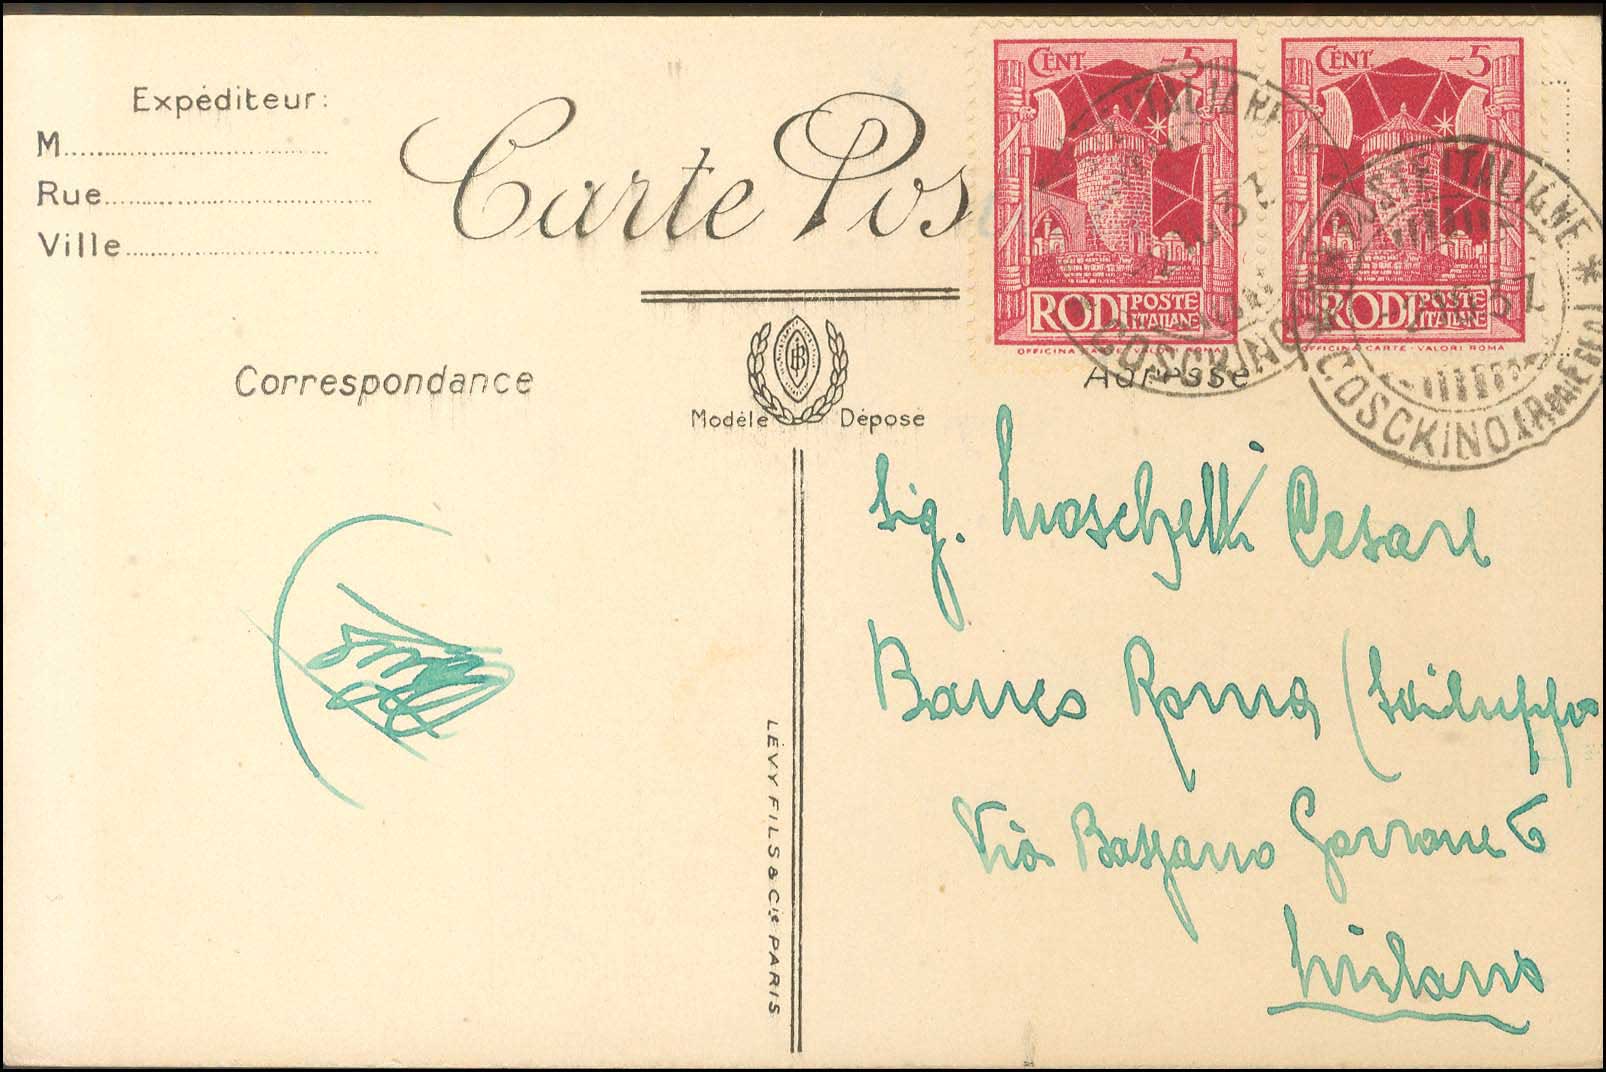 Expéditeur:
M
Rue
Ville
Carte Pos
CENT -5
CENT -5
RODI POSTE ITALIANE
RODI POSTE ITALIANE
OFFICINA CARTE-VALORI ROMA
OFFICINA CARTE-VALORI ROMA
POSTE ITALIANE
COSCKINO
POSTE ITALIANE *
COSCKINO (RODI EGEO)
Correspondance
Modèle Déposé
Adresse
Sig. Moschetti Cesare
Banco Roma (Sviluppo
Via Bassano Garrone 6
Milano
LÉVY FILS & Cie PARIS